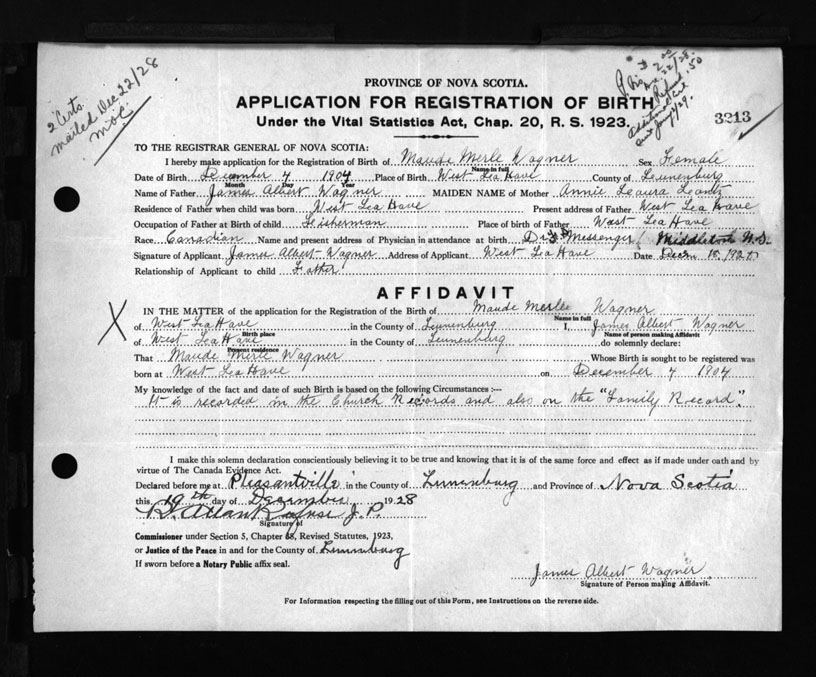 2 Certs.
mailed Dec 22/28
PROVINCE OF NOVA SCOTIA.
APPLICATION FOR REGISTRATION OF BIRTH
Under the Vital Statistics Act, Chap. 20, R. S. 1923.
3213
TO THE REGISTRAR GENERAL OF NOVA SCOTIA:
I hereby make application for the Registration of Birth of Maude Merle Wagner Sex Female
Name in full
Date of Birth December 4 1904 Place of Birth West La Have County of Lunenburg
Month Day Year
Name of Father James Albert Wagner MAIDEN NAME of Mother Annie Leaura
Residence of Father when child was born West La Have Present address of Father West La Have
Occupation of Father at Birth of Child Fisherman Place of birth of Father West La Have
Race Canadian Name and present address of Physician in attendance at birth Dr Messenger Middleton N.S.
Signature of Applicant James Albert Wagner Address of Applicant West La Have Date Decr
Relationship of Applicant to child Father
AFFIDAVIT
IN THE MATTER of the application for the Registration of the Birth of Maude Merle Wagner
Name in full
of West La Have in the County of Lunenburg I, James Albert Wagner
Birth place Name of person making Affidavit
of West La Have in the County of Lunenburg do solemnly declare:
Present residence
That Maude Merle Wagner Whose Birth is sought to be registered was
born at West La Have on December 4 1904
My knowledge of the fact and date of such Birth is based on the following Circumstances :—
It is recorded in the Church Records and also on the "Family Record".
I make this solemn declaration conscientiously believing it to be true and knowing that it is of the same force and effect as if made under oath and by
virtue of The Canada Evidence Act.
Declared before me at Pleasantville in the County of Lunenburg and Province of Nova Scotia
this 19th day of December 1928
J. P.
Signature of
Commissioner under Section 5, Chapter 68, Revised Statutes, 1923,
or Justice of the Peace in and for the County of Lunenburg
If sworn before a Notary Public affix seal.
James Albert Wagner
Signature of Person making Affidavit.
For Information respecting the filling out of this Form, see Instructions on the reverse side.